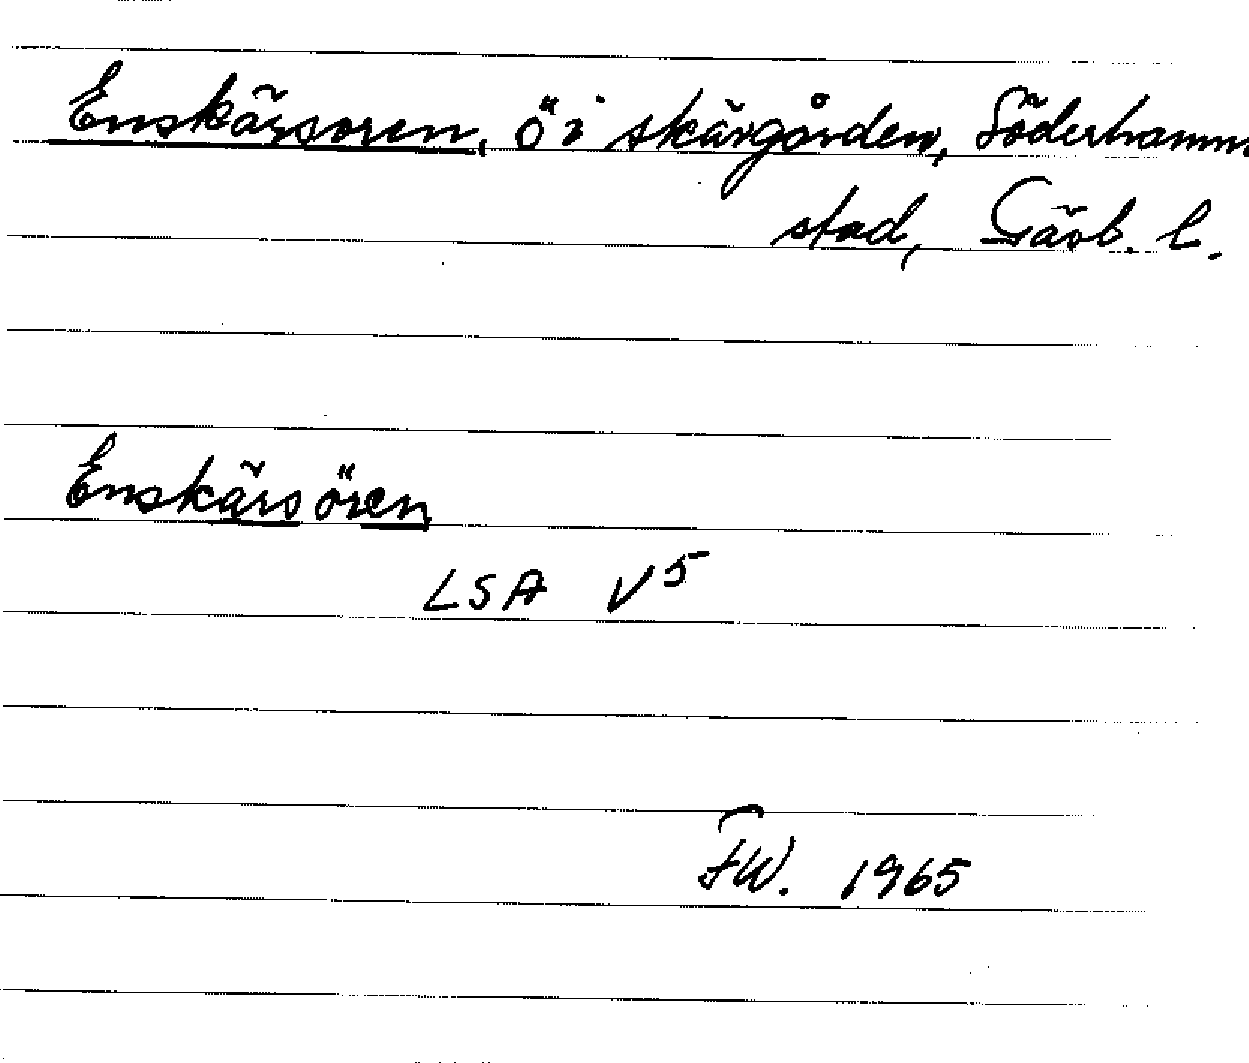 Enskärsoren, ö i skärgården, Söderhamn
stad, Gävb. l.
Enskärsören
LSA V5
FW. 1965